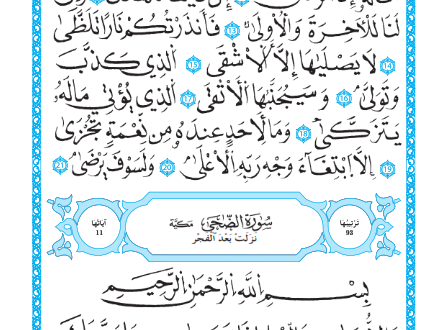 لَنَا لَلْآخِرَةَ وَالْأُولَىٰ 13 فَأَنذَرْتُكُمْ نَارًا تَلَظَّىٰ
14 لَا يَصْلَىٰهَا إِلَّا الْأَشْقَى 15 الَّذِي كَذَّبَ
وَتَوَلَّىٰ 16 وَسَيُجَنَّبُهَا الْأَتْقَى 17 الَّذِي يُؤْتِي مَالَهُ
يَتَزَكَّىٰ 18 وَمَا لِأَحَدٍ عِندَهُ مِن نِّعْمَةٍ تُجْزَىٰ
19 إِلَّا ابْتِغَاءَ وَجْهِ رَبِّهِ الْأَعْلَىٰ 20 وَلَسَوْفَ يَرْضَىٰ 21
تَرْتِيبُهَا 93
سُورَةُ الضُّحَىٰ مَكِّيَّة
نَزَلَتْ بَعْدَ الْفَجْرِ
آيَاتُهَا 11
بِسْمِ اللَّهِ الرَّحْمَٰنِ الرَّحِيمِ